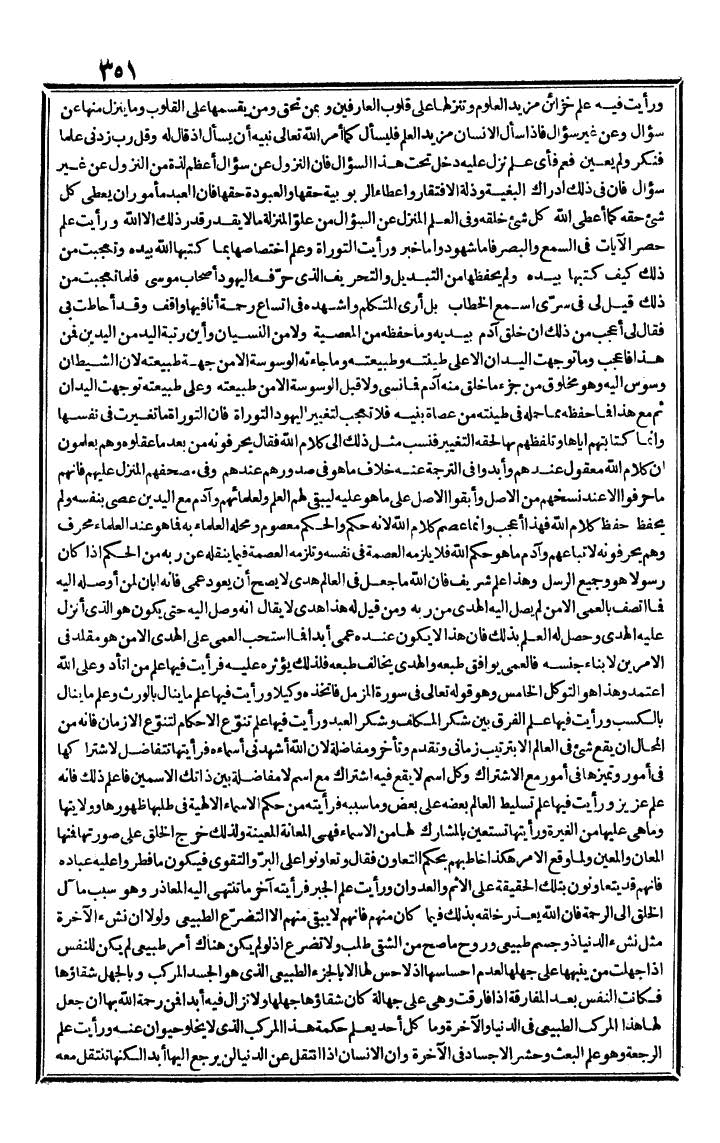 ٣٥١
ورأيت فيه علم خزائن مزيد العلوم وتنزلها على قلوب العارفين و بمن تحق ومن يقسمها على القلوب وما ينزل منها عن
سؤال وعن غير سؤال فاذا سأل الانسان مزيد العلم فليسأل كما أمر الله تعالى نبيه أن يسأل اذ قال له وقل رب زدنى علما
فنكر ولم يعين فعم فأى علم نزل عليه دخل تحت هذا السؤال فان النزول عن سؤال أعظم لذة من النزول عن غير
سؤال فان فى ذلك أدراك البغية وذلة الافتقار واعطاء الربوبية حقها والعبودة حقها فان العبد مأمور ان يعطى كل
شئ حقه كما أعطى الله كل شئ خلقه وفى العلم المنزل عن السؤال من علو المنزلة ما لا يقدر قدر ذلك الا الله ورأيت علم
حصر الآيات فى السمع والبصر فاما شهود واما خبر ورأيت التوراة وعلم اختصاصها بما كتبها الله بيده وتعجبت من
ذلك كيف كتبها بيده ولم يحفظها من التبديل والتحريف الذى حرفه اليهود أصحاب موسى فلما تعجبت من
ذلك قيل لى فى سرى اسمع الخطاب بل أرى المتكلم واشهده فى اتساع رحمة أنا فيها واقف وقد أحاطت بى
فقال لى أعجب من ذلك ان خلق آدم بيديه وما حفظه من المعصية ولا من النسيان وأين رتبة اليد من اليدين فمن
هذا فاعجب وما توجهت اليدان الا على طينته وطبيعته وما جاءته الوسوسة الا من جهة طبيعته لان الشيطان
وسوس اليه وهو مخلوق من جزء ما خلق منه آدم فانسى ولا قبل الوسوسة الا من طبيعته وعلى طبيعته توجهت اليدان
ثم مع هذا فما حفظه مما حمله فى طينته من عصاة بنيه فلا تعجب لتغيير اليهود التوراة فان التوراة ما تغيرت فى نفسها
وانما كتابتهم اياها وتلفظهم بها لحقه التغيير فنسب مثل ذلك الى كلام الله فقال يحرفونه من بعد ما عقلوه وهم يعلمون
ان كلام الله معقول عندهم وأبدوا فى الترجمة عنه خلاف ما هو فى صدورهم عندهم وفى مصحفهم المنزل عليهم فانهم
ما حرفوا الا عند نسخهم من الاصل وأبقوا الاصل على ما هو عليه ليبقى لهم العلم ولعلمائهم وآدم مع اليدين عصى بنفسه ولم
يحفظ حفظ كلام الله فهذا أعجب وانما عصم كلام الله لانه حكم والحكم معصوم ومحله العلماء به فما هو عند العلماء محرف
وهم يحرفونه لاتباعهم وآدم ما هو حكم الله فلا يلزمه العصمة فى نفسه وتلزمه العصمة فيما ينقله عن ربه من الحكم اذا كان
رسولا هو وجميع الرسل وهذا علم شريف فان الله ما جعل فى العالم هدى لا يصح أن يعود عمى فانه ابان لمن أوصله اليه
فما اتصف بالعمى الا من لم يصل اليه الهدى من ربه ومن قيل له هذا هدى لا يقال انه وصل اليه حتى يكون هو الذى أنزل
عليه الهدى وحصل له العلم بذلك فان هذا لا يكون عنده عمى أبدا فما استحب العمى على الهدى الا من هو مقلد فى
الامرين لابناء جنسه فالعمى يوافق طبعه والهدى يخالف طبعه فلذلك يؤثره عليه فرأيت فيها علم من اتأد وعلى الله
اعتمد وهذا هو التوكل الخامس وهو قوله تعالى فى سورة المزمل فاتخذه وكيلا ورأيت فيها علم ما ينال بالورث وعلم ما ينال
بالكسب ورأيت فيها علم الفرق بين شكر المكلف وشكر العبد ورأيت فيها علم تنوع الاحكام لتنوع الازمان فانه من
المحال ان يقع شئ فى العالم الا بترتيب زمانى وتقدم وتأخر ومفاضلة لان الله أشهدنى أسماءه فرأيتها تتفاضل لاشتراكها
فى أمور وتميزها فى أمور مع الاشتراك وكل اسم لا يقع فيه اشتراك مع اسم لا مفاضلة بين ذانك الاسمين فاعلم ذلك فانه
علم عزيز ورأيت فيها علم تسليط العالم بعضه على بعض وما سببه فرأيته من حكم الاسماء الالهية فى طلبها ظهورها وولايتها
وما هى عليها من الغيرة ورأيتها تستعين بالمشارك لها من الاسماء فهى المعانة المعينة ولذلك خرج الخلق على صورتها فمنها
المعان والمعين ولما وقع الامر هكذا خاطبهم بحكم التعاون فقال وتعاونوا على البر والتقوى فيكون ما فطروا عليه عباده
فانهم قد يتعاونون بتلك الحقيقة على الاثم والعدوان ورأيت علم الجبر فرأيته آخر ما تنتهى اليه المعاذر وهو سبب مآل
الخلق الى الرحمة فان الله يعذر خلقه بذلك فيما كان منهم فانهم لا يبقى منهم الا التضرع الطبيعى ولولا ان نشء الآخرة
مثل نشء الدنيا ذو جسم طبيعى وروح ما صح من الشقى طلب ولا تضرع اذ لو لم يكن هناك أمر طبيعى لم يكن للنفس
اذا جهلت من ينبهها على جهلها لعدم احساسها اذ لا حس لها الا بالجزء الطبيعى الذى هو الجسد المركب وبالجهل شقاؤها
فكانت النفس بعد المفارقة اذا فارقت وهى على جهالة كان شقاؤها جهلها ولا تزال فيه أبدا فمن رحمة الله بها ان جعل
لها هذا المركب الطبيعى فى الدنيا والآخرة وما كل أحد يعلم حكمة هذا المركب الذى لا يخلو حيوان عنه ورأيت علم
الرجعة وهو علم البعث وحشر الاجساد فى الآخرة وان الانسان اذا انتقل عن الدنيا لن يرجع اليها أبدا لكنها تنتقل معه